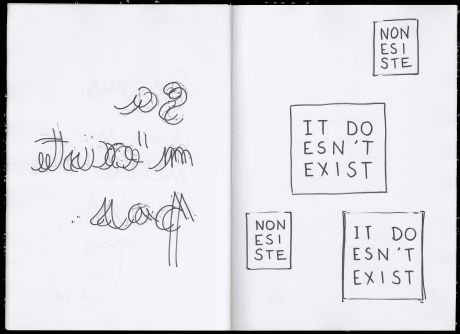 Ça
n'existe
pas..
NON
ESI
STE
IT DO
ESN'T
EXIST
NON
ESI
STE
IT DO
ESN'T
EXIST